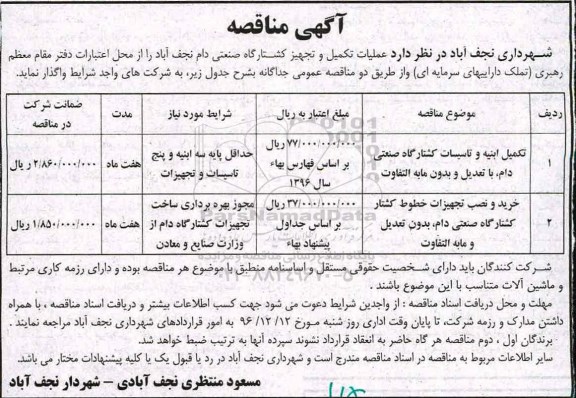 آگهی مناقصه
شهرداری نجف آباد در نظر دارد عملیات تکمیل و تجهیز کشتارگاه صنعتی دام نجف آباد را از محل اعتبارات دفتر مقام معظم
رهبری (تملک داراییهای سرمایه ای) واز طریق دو مناقصه عمومی جداگانه بشرح جدول زیر، به شرکت های واجد شرایط واگذار نماید.
ردیف موضوع مناقصه مبلغ اعتبار به ریال شرایط مورد نیاز مدت ضمانت شرکت در مناقصه
۱ تکمیل ابنیه و تاسیسات کشتارگاه صنعتی دام، با تعدیل و بدون مابه التفاوت ۷۷/۰۰۰/۰۰۰/۰۰۰ ریال بر اساس فهارس بهاء سال ۱۳۹۶ حداقل پایه سه ابنیه و پنج تاسیسات و تجهیزات هفت ماه ۲/۸۶۰/۰۰۰/۰۰۰ ریال
۲ خرید و نصب تجهیزات خطوط کشتار کشتارگاه صنعتی دام، بدون تعدیل و مابه التفاوت ۳۷/۰۰۰/۰۰۰/۰۰۰ ریال بر اساس جداول پیشنهاد بهاء مجوز بهره برداری ساخت تجهیزات کشتارگاه دام از وزارت صنایع و معادن هفت ماه ۱/۸۵۰/۰۰۰/۰۰۰ ریال
شرکت کنندگان باید دارای شخصیت حقوقی مستقل و اساسنامه منطبق با موضوع هر مناقصه بوده و دارای رزمه کاری مرتبط
و ماشین آلات متناسب با این موضوع باشند .
مهلت و محل دریافت اسناد مناقصه : از واجدین شرایط دعوت می شود جهت کسب اطلاعات بیشتر و دریافت اسناد مناقصه ، با همراه
داشتن مدارک و رزمه شرکت، تا پایان وقت اداری روز شنبه مورخ ۹۶/۱۲/۱۲ به امور قراردادهای شهرداری نجف آباد مراجعه نمایند .
برندگان اول ، دوم مناقصه هر گاه حاضر به انعقاد قرارداد نشوند سپرده آنها به ترتیب ضبط خواهد شد.
سایر اطلاعات مربوط به مناقصه در اسناد مناقصه مندرج است و شهرداری نجف آباد در رد یا قبول یک یا کلیه پیشنهادات مختار می باشد.
مسعود منتظری نجف آبادی – شهردار نجف آباد
ParsNamadData